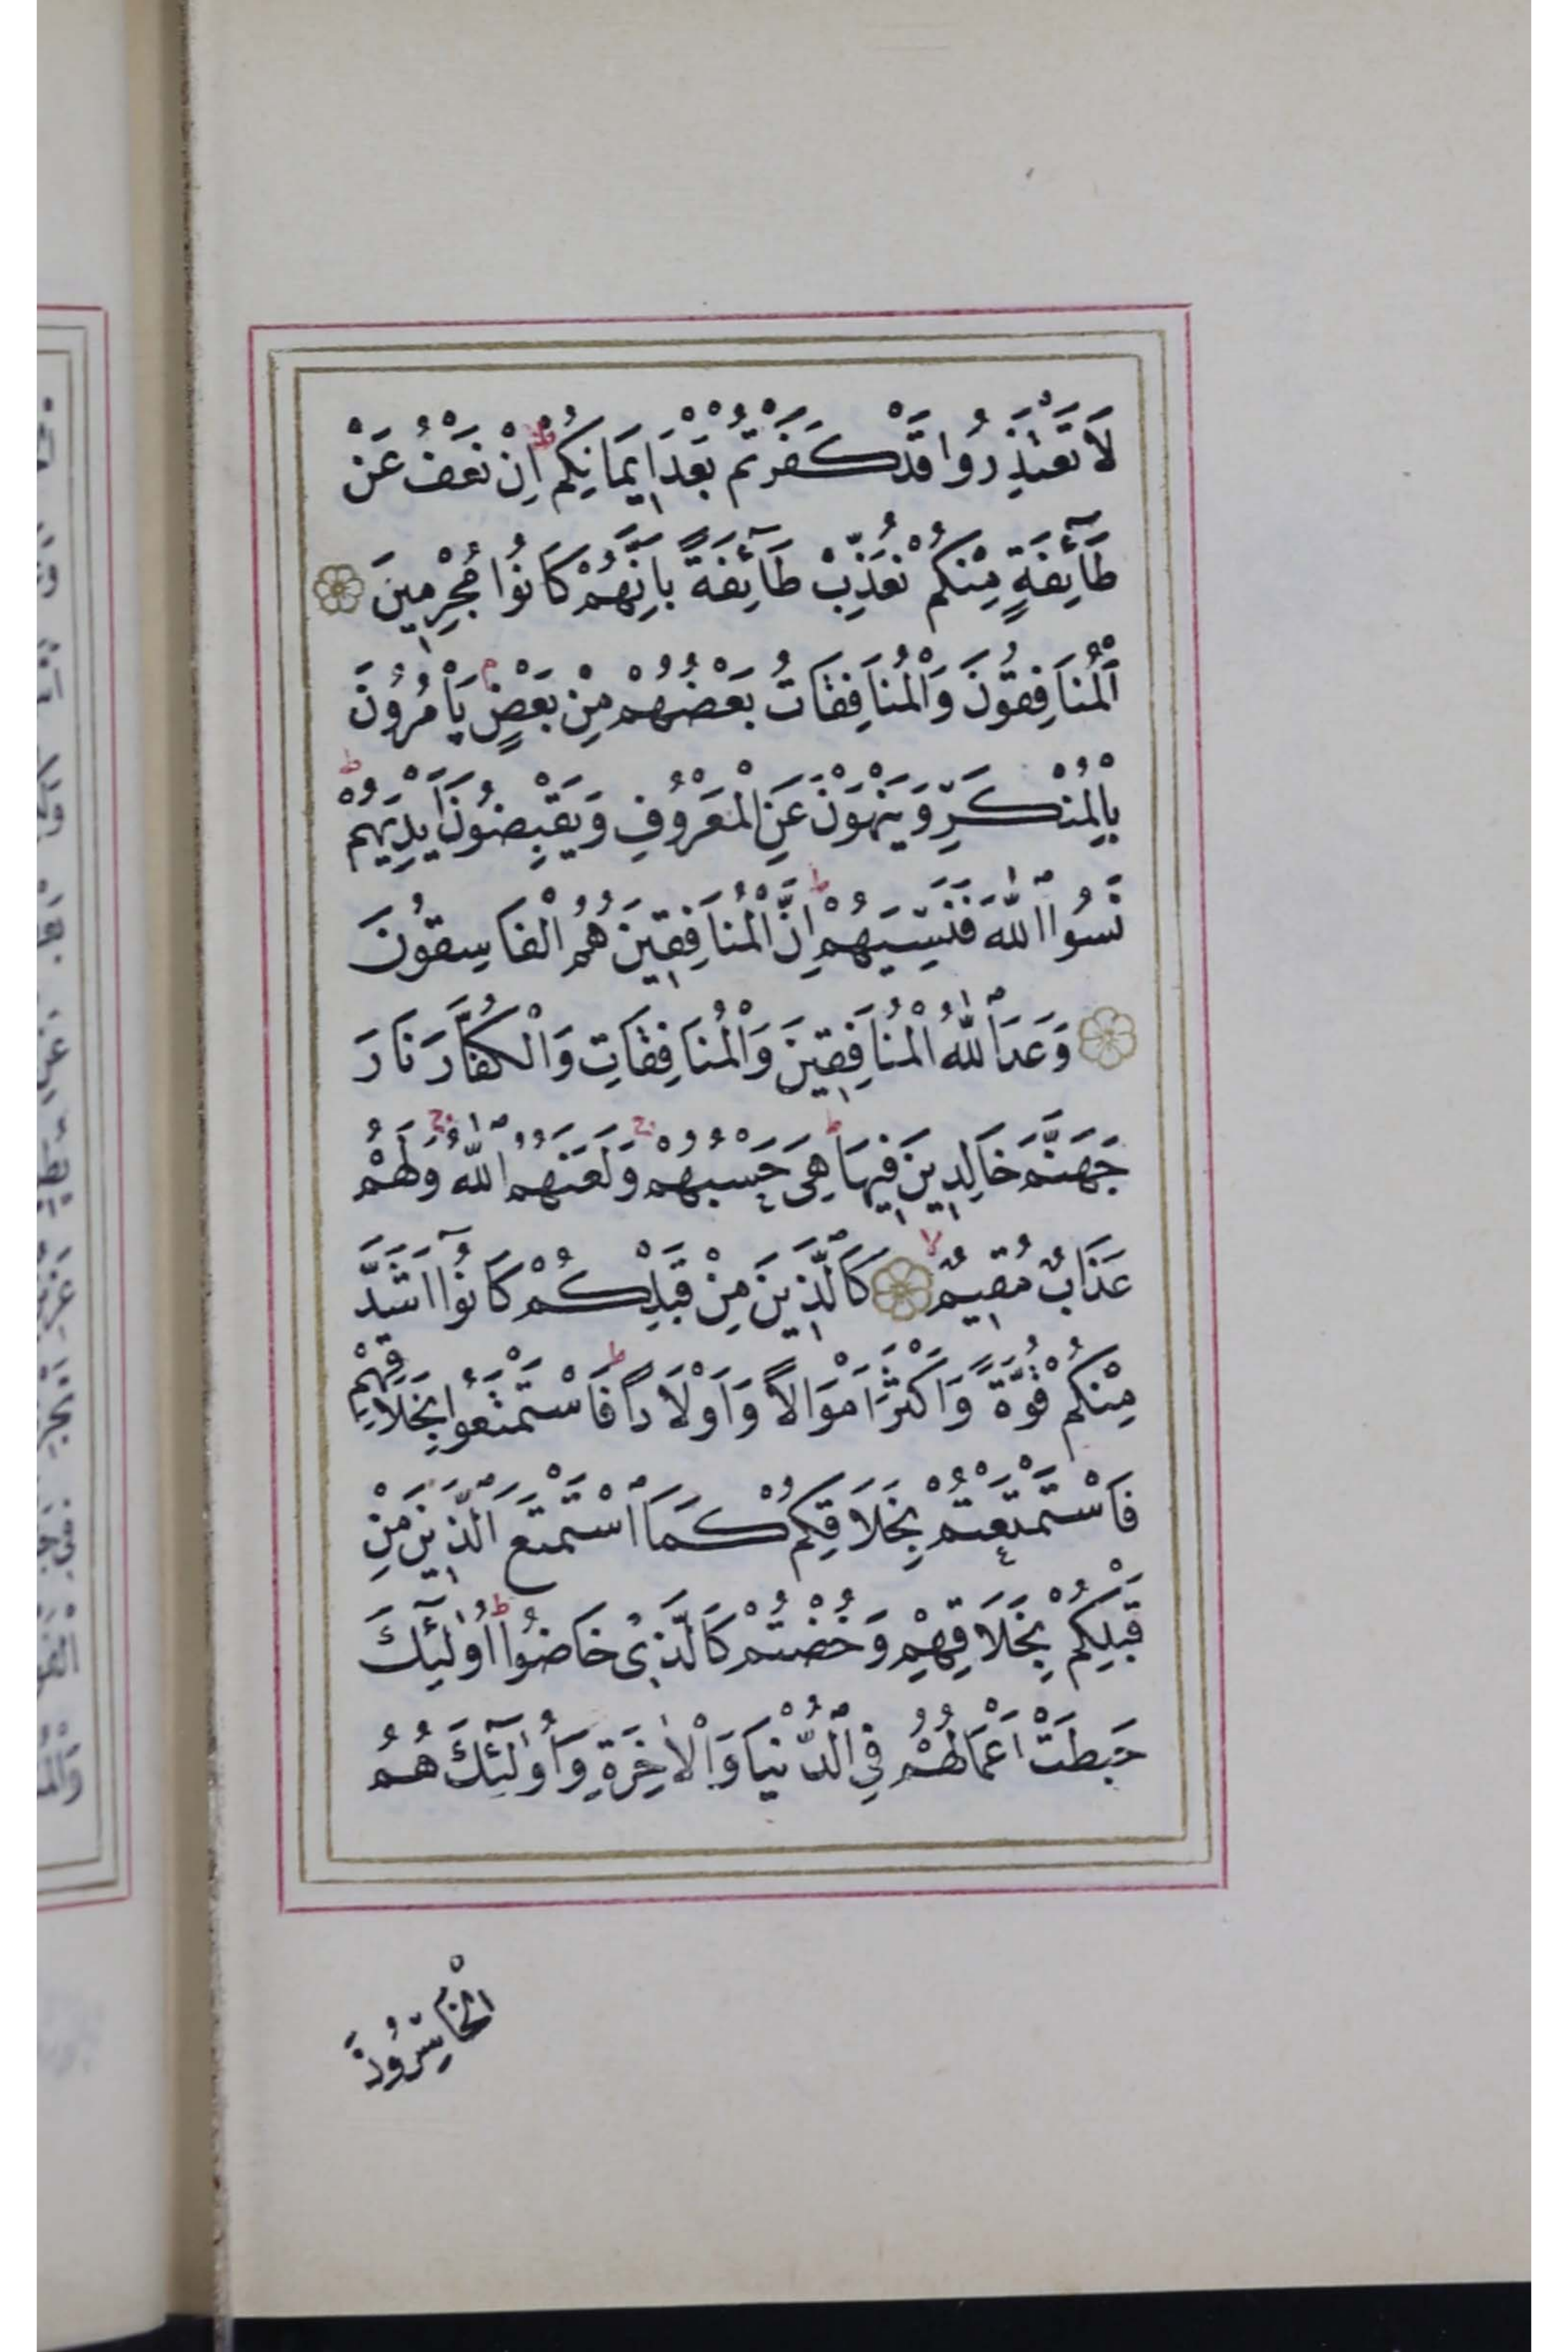 لَا تَعْتَذِرُوا قَدْ كَفَرْتُمْ بَعْدَ اِيمَانِكُمْ ط اِنْ نَعْفُ عَنْ
طَآئِفَةٍ مِنْكُمْ نُعَذِّبْ طَآئِفَةً بِاَنَّهُمْ كَانُوا مُجْرِمِينَ
اَلْمُنَافِقُونَ وَالْمُنَافِقَاتُ بَعْضُهُمْ مِنْ بَعْضٍ م يَأْمُرُونَ
بِالْمُنْكَرِ وَيَنْهَوْنَ عَنِ الْمَعْرُوفِ وَيَقْبِضُونَ اَيْدِيَهُمْ ط
نَسُوا اللّٰهَ فَنَسِيَهُمْ ط اِنَّ الْمُنَافِقِينَ هُمُ الْفَاسِقُونَ
وَعَدَ اللّٰهُ الْمُنَافِقِينَ وَالْمُنَافِقَاتِ وَالْكُفَّارَ نَارَ
جَهَنَّمَ خَالِدِينَ فِيهَا ط هِيَ حَسْبُهُمْ ج وَلَعَنَهُمُ اللّٰهُ ج وَلَهُمْ
عَذَابٌ مُقِيمٌ لا كَالَّذِينَ مِنْ قَبْلِكُمْ كَانُوا اَشَدَّ
مِنْكُمْ قُوَّةً وَاَكْثَرَ اَمْوَالًا وَاَوْلَادًا ط فَاسْتَمْتَعُوا بِخَلَاقِهِمْ
فَاسْتَمْتَعْتُمْ بِخَلَاقِكُمْ كَمَا اسْتَمْتَعَ الَّذِينَ مِنْ
قَبْلِكُمْ بِخَلَاقِهِمْ وَخُضْتُمْ كَالَّذِي خَاضُوا ط اُولٰٓئِكَ
حَبِطَتْ اَعْمَالُهُمْ فِي الدُّنْيَا وَالْاٰخِرَةِ وَاُولٰٓئِكَ هُمُ
الْخَاسِرُونَ